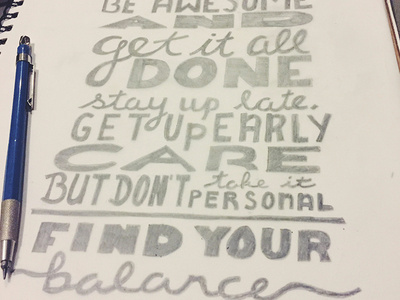 BE AWESOME
AND
get it all
DONE
stay up late.
GET UP EARLY
CARE
BUT DON'T take it PERSONAL
FIND YOUR
balance